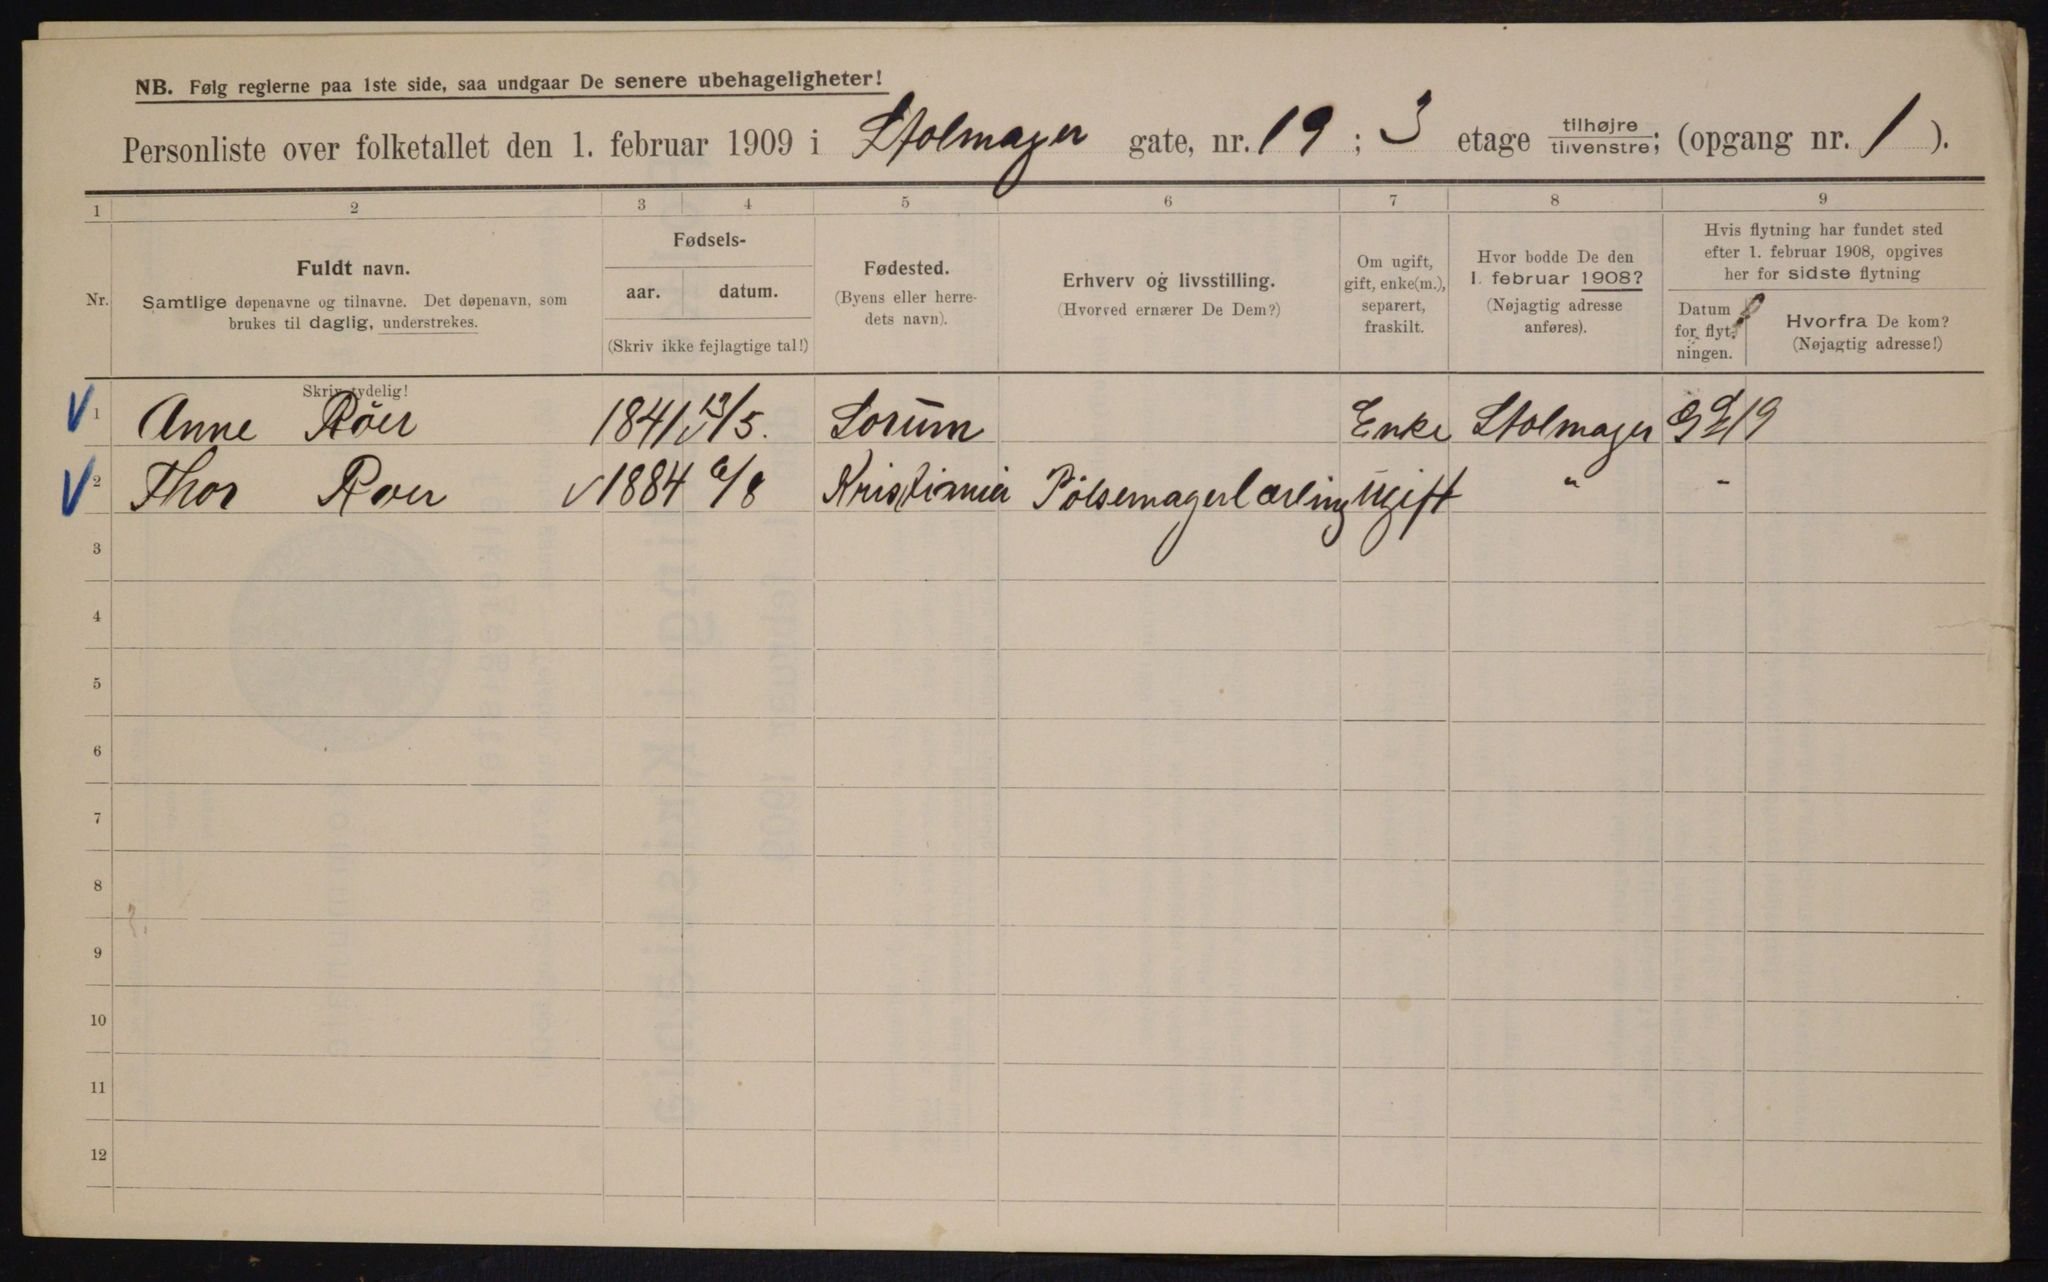 NB. Følg reglerne paa 1ste side, saa undgaar De senere ubehageligheter!
Personliste over folketallet den 1. februar 1909 i Stolmager gate, nr. 19 ; 3 etage tilhøjre tilvenstre; (opgang nr. 1 ).
1 2 3 4 5 6 7 8 9
Nr.
Fuldt navn.
Samtlige døpenavne og tilnavne. Det døpenavn, som
brukes til daglig, understrekes.
Skriv tydelig!
Fødsels-
aar. datum.
(Skriv ikke fejlagtige tal!)
Fødested.
(Byens eller herre-
dets navn).
Erhverv og livsstilling.
(Hvorved ernærer De Dem?)
Om ugift,
gift, enke(m.),
separert,
fraskilt.
Hvor bodde De den
1. februar 1908?
(Nøjagtig adresse
anføres).
Hvis flytning har fundet sted
efter 1. februar 1908, opgives
her for sidste flytning
Datum
for flyt-
ningen.
Hvorfra De kom?
(Nøjagtig adresse!)
1 Anne Röer 1841 /5. Sorum Enke Stolmager 19
2 Thor Roer 1884 6/8 Kristiania Pölsemagerlærling Ugift " -
3
4
5
6
7
8
9
10
11
12